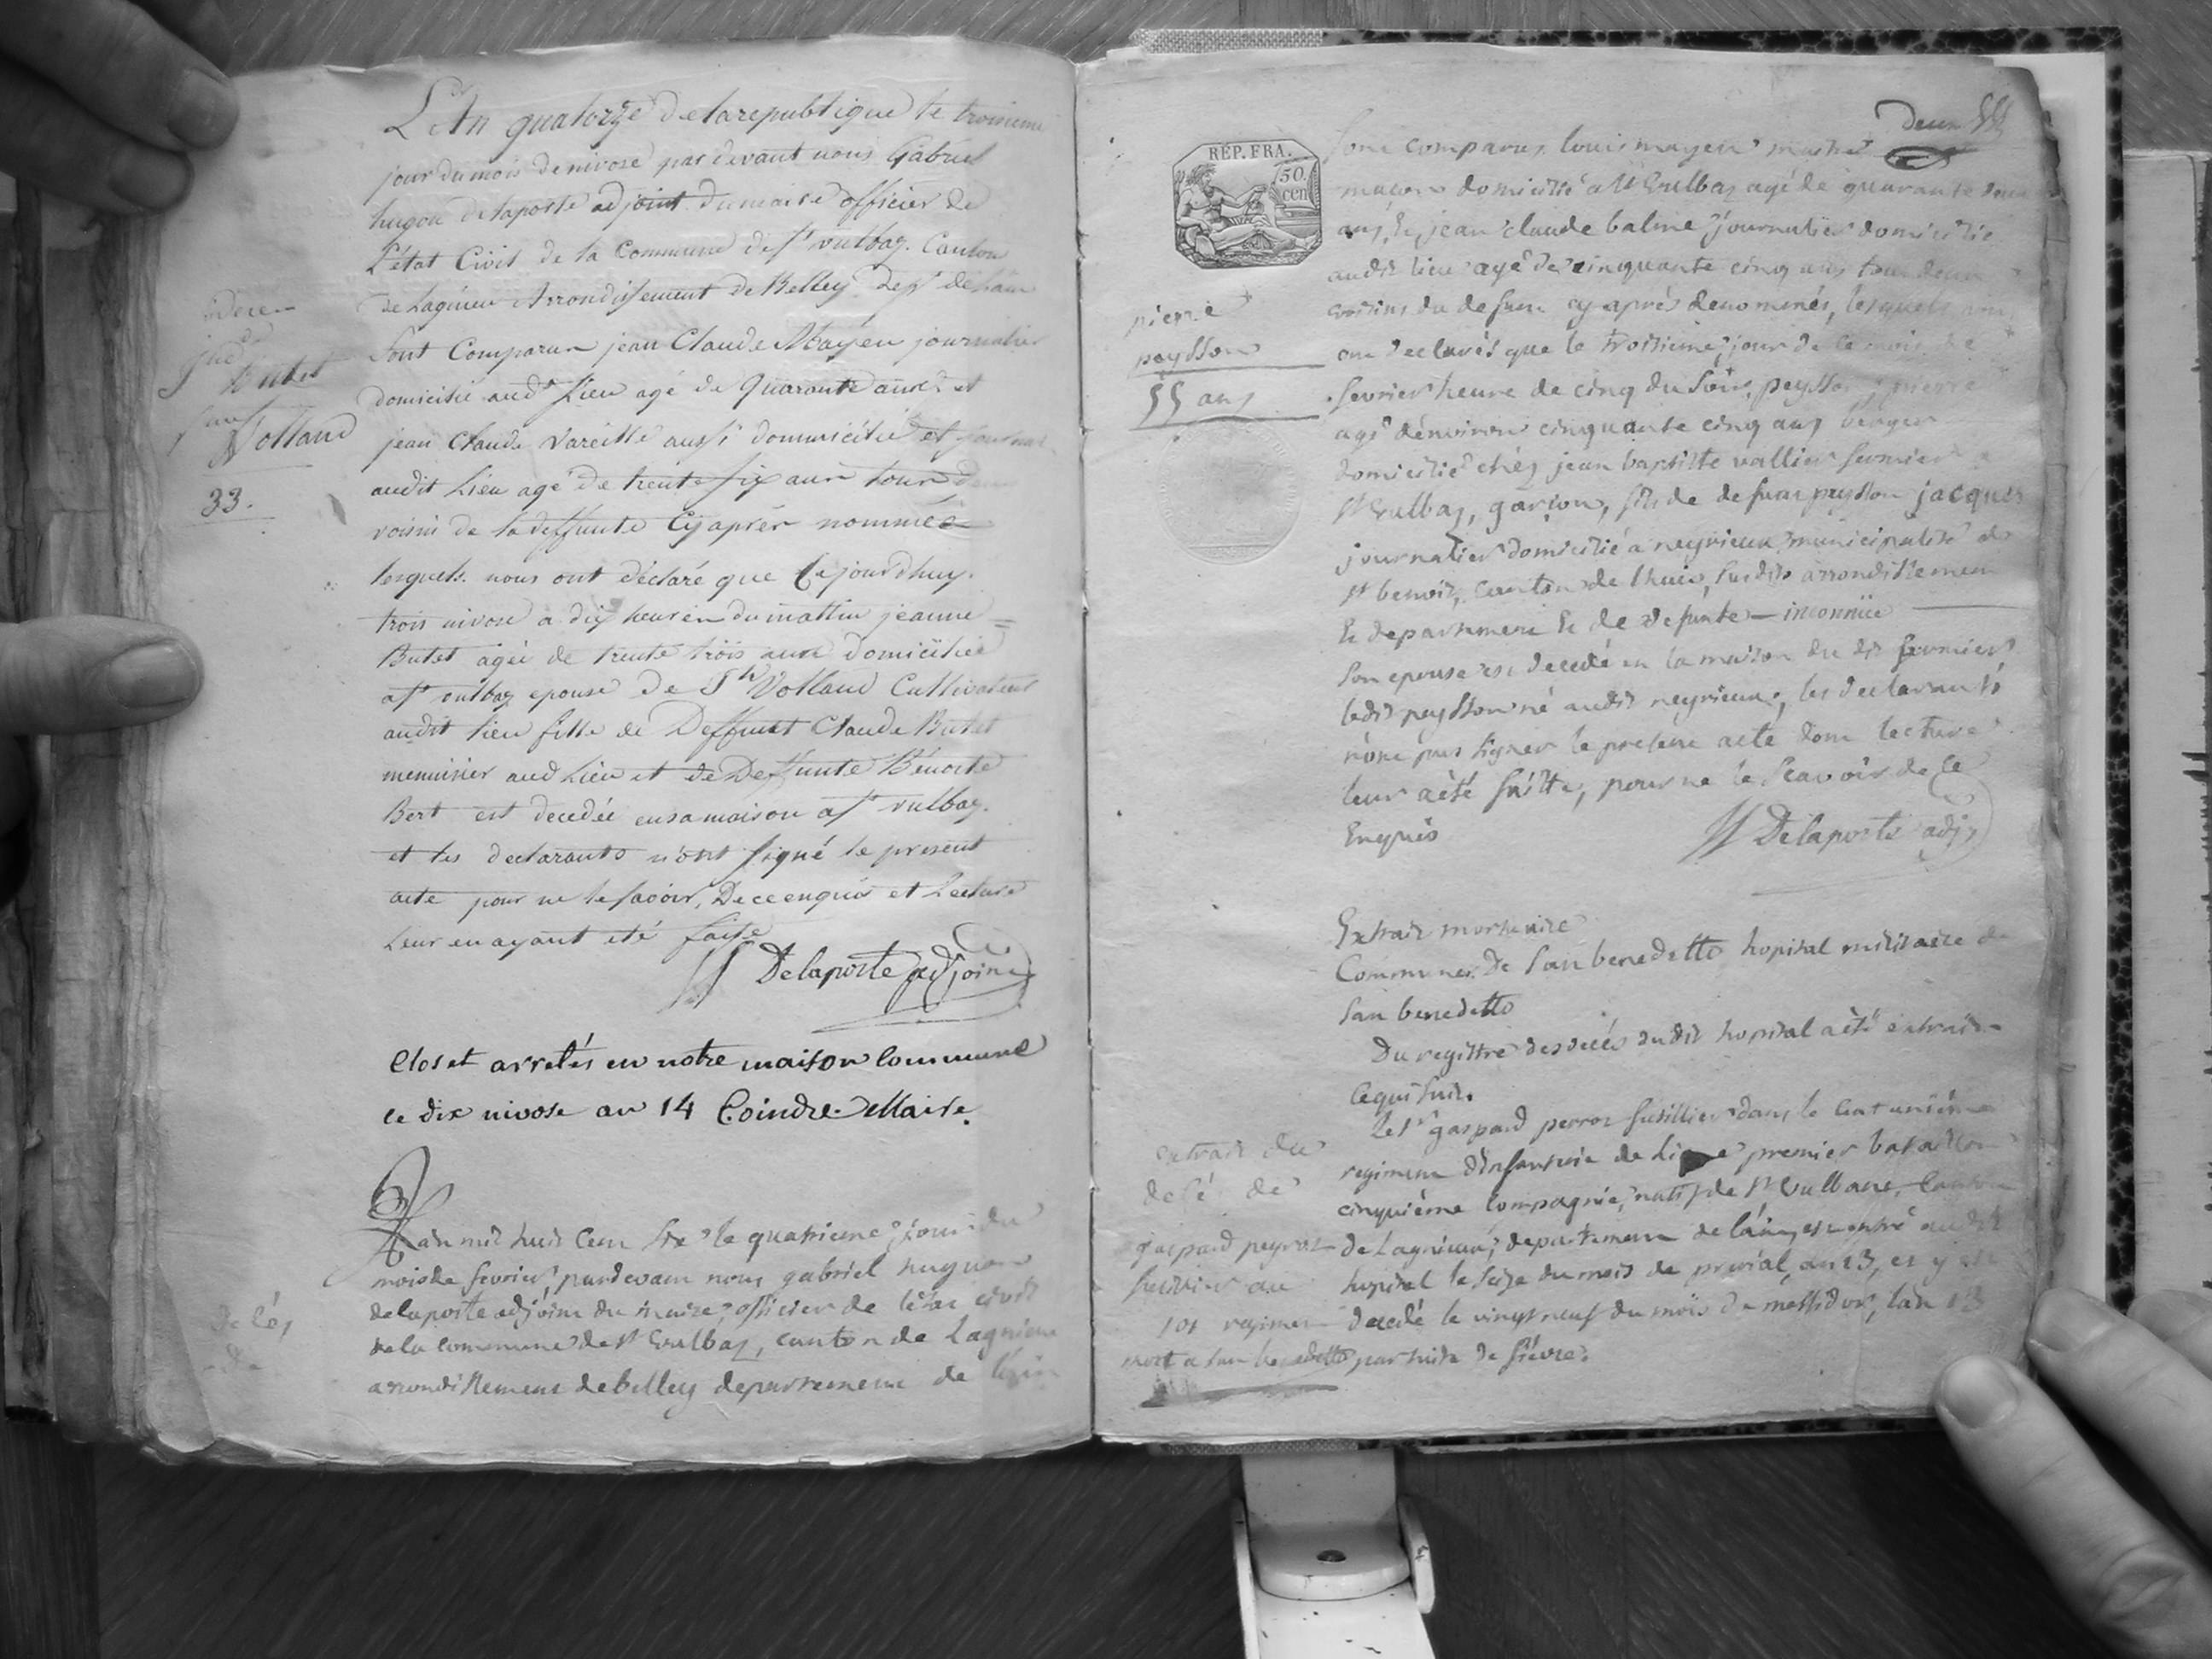 L'An quatorze de la republique le troisieme
jour du mois de nivose par devant nous Gabriel
hugon delaporte adjoint du maire officier de
L'état Civil de la Commune de st vulbaz. Canton
de Lagnieu Arrondissement de Belley Dept de Lain
Sont Comparus jean Claude Mayen journalier
domicilié audt Lieu agé de Quarante ans et
jean Claude Vareille aussi domicilié et
audit Lieu agé de trente six ans tous deux
voisins de la deffunte Cy après nommée
lesquels nous ont déclaré que Cejourdhuy
trois nivose a dix heures du mattin jeanne
Butet agée de trente trois ans domiciliée
a st vulbaz epouse de Jh Volland Cultivateur
audit lieu fille de Deffunt Claude Butet
menuisier aud Lieu et de Deffunte Bénoite
Bert est decedée en sa maison a st vulbaz.
et les declarants n'ont signé le present
acte pour ne le savoir, De ce enquis et Lecture
Leur en ayant eté faite
Delaporte adjoint
Butet
Volland
33.
Clos et arretés en notre maison Commune
ce dix nivose an 14 Coindre Maire.
Lan mil huit Cent six le quatrieme jour du
mois de fevrier, pardevant nous gabriel hugon
delaporte adjoint du maire, officier de létat civil
de la commune de st Vulbaz, canton de Lagnieu
arrondissement de belley departement de lain
Decés
de
Deux
REP. FRA.
50.
cen
sont comparus, louis mayen maitre
maçon domicilié a st Vulbaz agé de quarante deux
ans, & jean claude balme journalier domicilié
audit lieu agé de cinquante cinq ans tous deux
voisins du defunt cy après denommés, lesquels nous
ont declarés que le troisieme jour de ce mois de
fevrier heure de cinq du soir, peysson pierre
agé d'environ cinquante cinq ans berger
domicilié chéz jean baptiste vallier fermier a
st Vulbaz, garçon, fils de defunt peysson jacques
journalier domicilié a neyrieux municipalité de
st benoit, canton de lhuis, susdit arrondissement
& departement & de defunte — inconnüe
son epouse est decedé en la maison du dit fermier
ledit peysson né audit neyrieux, les declarants
n'ont pas signer le present acte dont lecture
leur a été faitte, pour ne le scavoir de ce
Enquis
Delaporte adj
pierre
peysson
55 ans
Extrait mortuaire
Commune De San benedetto hopital militaire de
San benedetto
Du registre des décés du dit hopital a été extrait
Ce qui suit.
Le sr gaspard perroz fusillier dans le Cent unieme
regiment d'infanterie de Ligne premier bataillon
cinquième compagnie, natif de st Vulbane, Canton
de Lagnieux, departement de lain, est entré audit
hopital le seize du mois de prerial, an 13, et y est
decedé le vingt neuf du mois de messidor, lan 13
par suite de fiévre.
extrait du
décé de
gaspard peyroz
fusilier au
101 regiment
mort a san benedetto